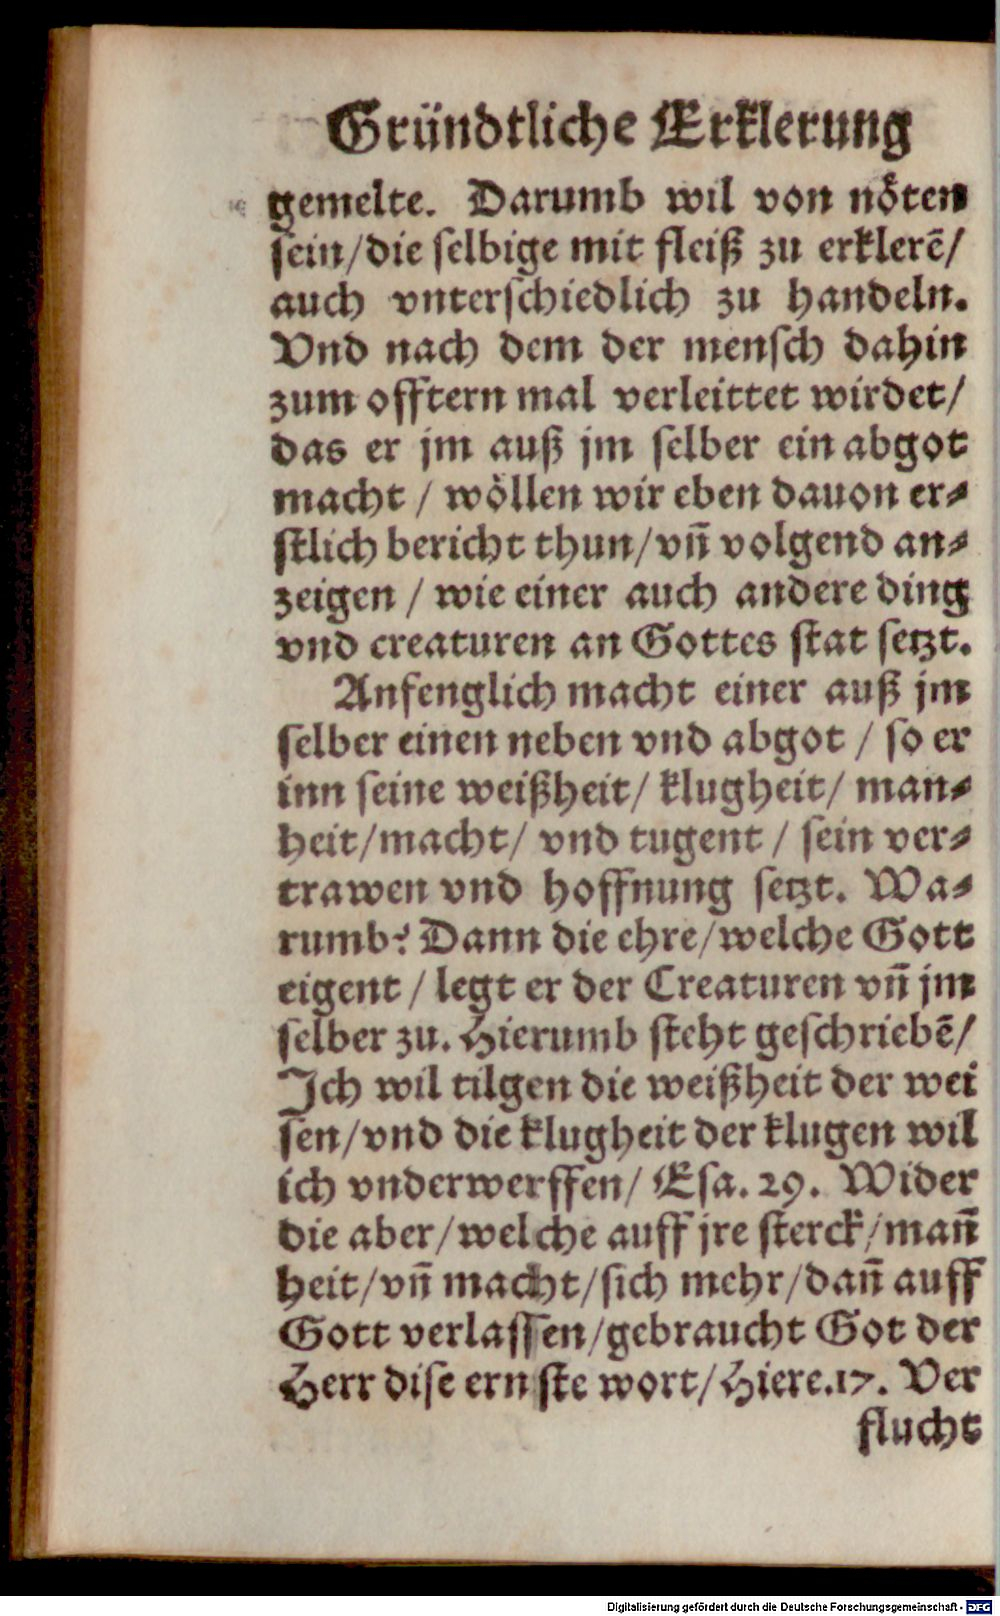 Gründtliche Erklerung
gemelte. Darumb wil von nöten
sein/die selbige mit fleiß zu erklerē/
auch vnterschiedlich zu handeln.
Vnd nach dem der mensch dahin
zum offtern mal verleittet wirdet/
das er jm auß jm selber ein abgot
macht / wöllen wir eben dauon er⸗
stlich bericht thun/vn̄ volgend an⸗
zeigen / wie einer auch andere ding
vnd creaturen an Gottes stat setzt.
Anfenglich macht einer auß jm
selber einen neben vnd abgot / so er
inn seine weißheit/ klugheit/ man⸗
heit/macht/ vnd tugent / sein ver⸗
trawen vnd hoffnung setzt. Wa⸗
rumb? Dann die ehre/welche Gott
eigent / legt er der Creaturen vn̄ jm
selber zu. Hierumb steht geschriebē/
Ich wil tilgen die weißheit der wei
sen/vnd die klugheit der klugen wil
ich vnderwerffen/ Esa. 29. Wider
die aber/welche auff jre sterck/man̄
heit/vn̄ macht/sich mehr/dan̄ auff
Gott verlassen/gebraucht Got der
Herr dise ernste wort/Hiere.17. Ver
flucht
Digitalisierung gefördert durch die Deutsche Forschungsgemeinschaft - DFG